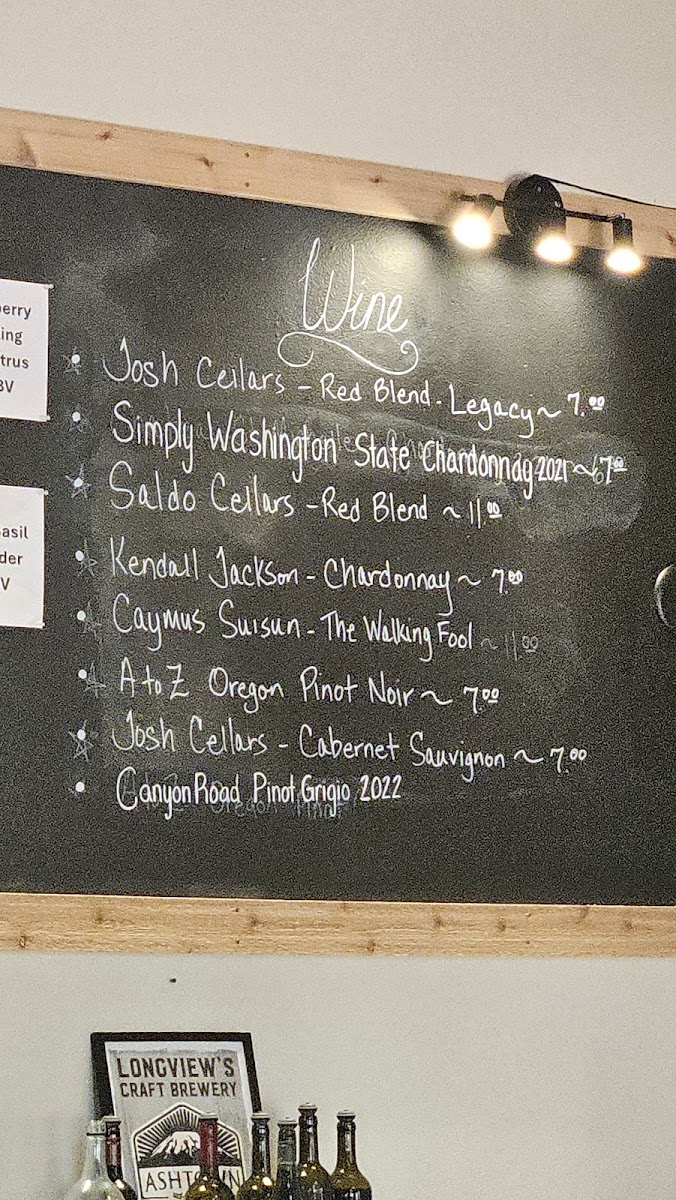 Wine
Josh Cellars - Red Blend - Legacy ~ 7.00
Simply Washington State Chardonnay 2021 ~ 7.00
Saldo Cellars - Red Blend ~ 11.00
Kendall Jackson - Chardonnay ~ 7.00
Caymus Suisun - The Walking Fool ~ 11.00
A to Z Oregon Pinot Noir ~ 7.00
Josh Cellars - Cabernet Sauvignon ~ 7.00
Canyon Road Pinot Grigio 2022
LONGVIEW'S
CRAFT BREWERY
ASHTOWN